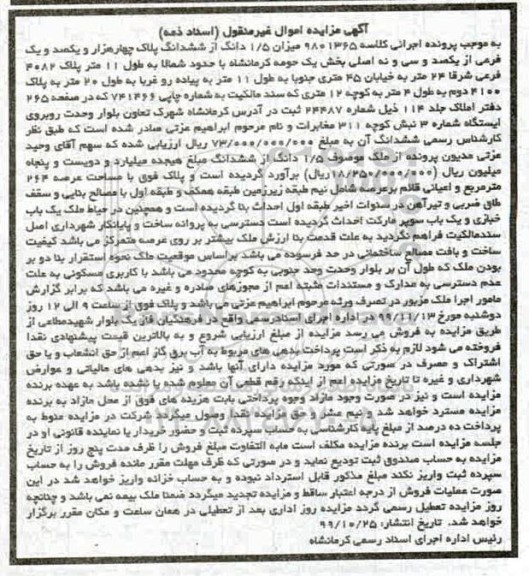 آگهی مزایده اموال غیرمنقول (اسناد ذمه)
به موجب پرونده اجرائی کلاسه ۹۸۰۱۳۶۵ میزان ۱/۵ دانگ از ششدانگ پلاک چهارهزار و یکصد و یک
فرعی از یکصد و سی و نه اصلی بخش یک حومه کرمانشاه با حدود شمالا به طول ۱۱ متر پلاک ۴۰۸۲
فرعی شرقا ۲۴ متر به خیابان ۴۵ متری جنوبا به طول ۱۱ متر به پیاده رو غربا به طول ۲۰ متر به پلاک
۴۱۰۰ دوم به طول ۴ متر به کوچه ۱۲ متری که سند مالکیت به شماره چاپی ۷۴۱۴۶۶ که در صفحه ۲۶۵
دفتر املاک جلد ۱۱۴ ذیل شماره ۲۴۴۸۷ ثبت در آدرس کرمانشاه شهرک تعاون بلوار وحدت روبروی
ایستگاه شماره ۳ نبش کوچه ۳۱۱ مخابرات و نام مرحوم ابراهیم عزتی صادر شده است که طبق نظر
کارشناس رسمی ششدانگ آن به مبلغ ۷۳/۰۰۰/۰۰۰/۰۰۰ ریال ارزیابی شده که سهم آقای وحید
عزتی مدیون پرونده از ملک موصوف ۱/۵ دانگ از ششدانگ مبلغ هیجده میلیارد و دویست و پنجاه
میلیون ریال (۱۸/۲۵۰/۰۰۰/۰۰۰ریال) برآورد گردیده است و پلاک فوق با مساحت عرصه ۲۶۴
مترمربع و اعیانی قائم برعرصه شامل نیم طبقه زیرزمین طبقه همکف و طبقه اول با مصالح بنایی و سقف
طاق ضربی و تیرآهن در سنوات اخیر طبقه اول احداث بنا گردیده است و همچنین در حیاط ملک یک باب
خبازی و یک باب سوپر مارکت احداث گردیده است دسترسی به پروانه ساخت و پایانکار شهرداری اصل
سندمالکیت فراهم نگردید به علت قدمت بنا ارزش ملک بیشتر بر روی عرصه متمرکز می باشد کیفیت
ساخت و بافت مصالح ساختمانی در حد فرسوده می باشد براساس موقعیت ملک نحوه استقرار بنا دو بر
بودن ملک که طول آن بر بلوار وحدت وحد جنوبی به کوچه محدود می باشد با کاربری مسکونی به علت
عدم دسترسی به مدارک و مستندات مثبته اعم از مجوزهای صادره و غیره می باشد که برابر گزارش
مامور اجرا ملک مزبور در تصرف ورثه مرحوم ابراهیم عزتی می باشد و پلاک فوق از ساعت ۹ الی ۱۲ روز
دوشنبه مورخ ۹۹/۱۱/۱۳ در اداره اجرای اسنادرسمی واقع در فرهنگیان فاز یک بلوار شهیدمطاعی از
طریق مزایده به فروش می رسد مزایده از مبلغ ارزیابی شروع و به بالاترین قیمت پیشنهادی نقدا
فروخته می شود لازم به ذکر است پرداخت بدهی های مربوط به آب برق گاز اعم از حق انشعاب و یا حق
اشتراک و مصرف در صورتی که مورد مزایده دارای آنها باشد و نیز بدهی های مالیاتی و عوارض
شهرداری و غیره تا تاریخ مزایده اعم از اینکه رقم قطعی آن معلوم شده یا نشده باشد به عهده برنده
مزایده است و نیز در صورت وجود مازاد وجوه پرداختی بابت هزینه های فوق از محل مازاد به برنده
مزایده مسترد خواهد شد و نیم عشر و حق مزایده نقدا وصول میگردد شرکت در مزایده منوط به
پرداخت ده درصد از مبلغ پایه کارشناسی به حساب سپرده ثبت و حضور خریدار یا نماینده قانونی او در
جلسه مزایده است برنده مزایده مکلف است مابه التفاوت مبلغ فروش را ظرف مدت پنج روز از تاریخ
مزایده به حساب صندوق ثبت تودیع نماید و در صورتی که ظرف مهلت مقرر مانده فروش را به حساب
سپرده ثبت واریز نکند مبلغ مذکور قابل استرداد نبوده و به حساب خزانه واریز خواهد شد در این
صورت عملیات فروش از درجه اعتبار ساقط و مزایده تجدید میگردد ضمنا ملک بیمه نمی باشد و چنانچه
روز مزایده تعطیل رسمی گردد مزایده روز اداری بعد از تعطیلی در همان ساعت و مکان مقرر برگزار
خواهد شد. تاریخ انتشار: ۹۹/۱۰/۲۵
رئیس اداره اجرای اسناد رسمی کرمانشاه